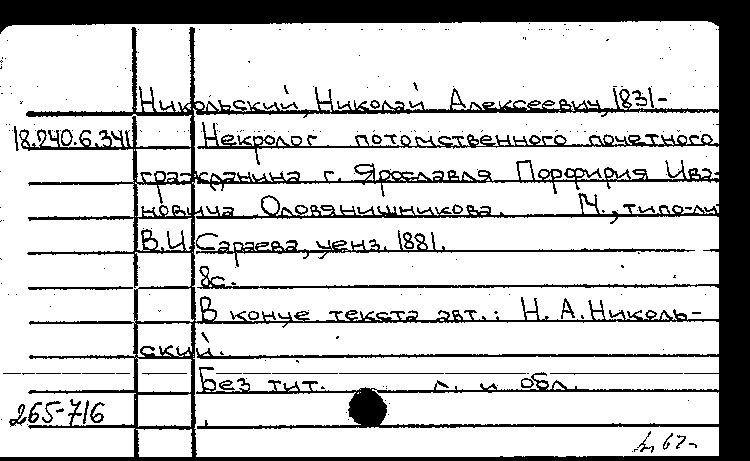 Никольский, Николай Алексеевич, 1831-
18.240.6.341 Некролог потомственного почетного
гражданина г. Ярославля Порфирия Ива-
новича Оловянишникова. М., типо-ли
В.И. Сараева, ценз. 1881.
8с.
В конце текста авт.: Н. А. Николь-
ский.
Без тит. л. и обл.
265-716